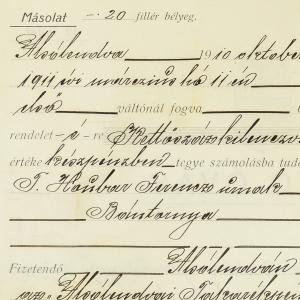 Másolat — . 20 fillér bélyeg.
Alsólendva 1910 október
1911 évi március hó 11 én
első váltónál fogva
rendelet – ó – re Kettőszázkilencz
értéke készpénzben tegye számolásba tud
T. Horibar Ferencz úrnak
Bántornya
Fizetendő Alsólendván
az „Alsólendvai Takarékpén